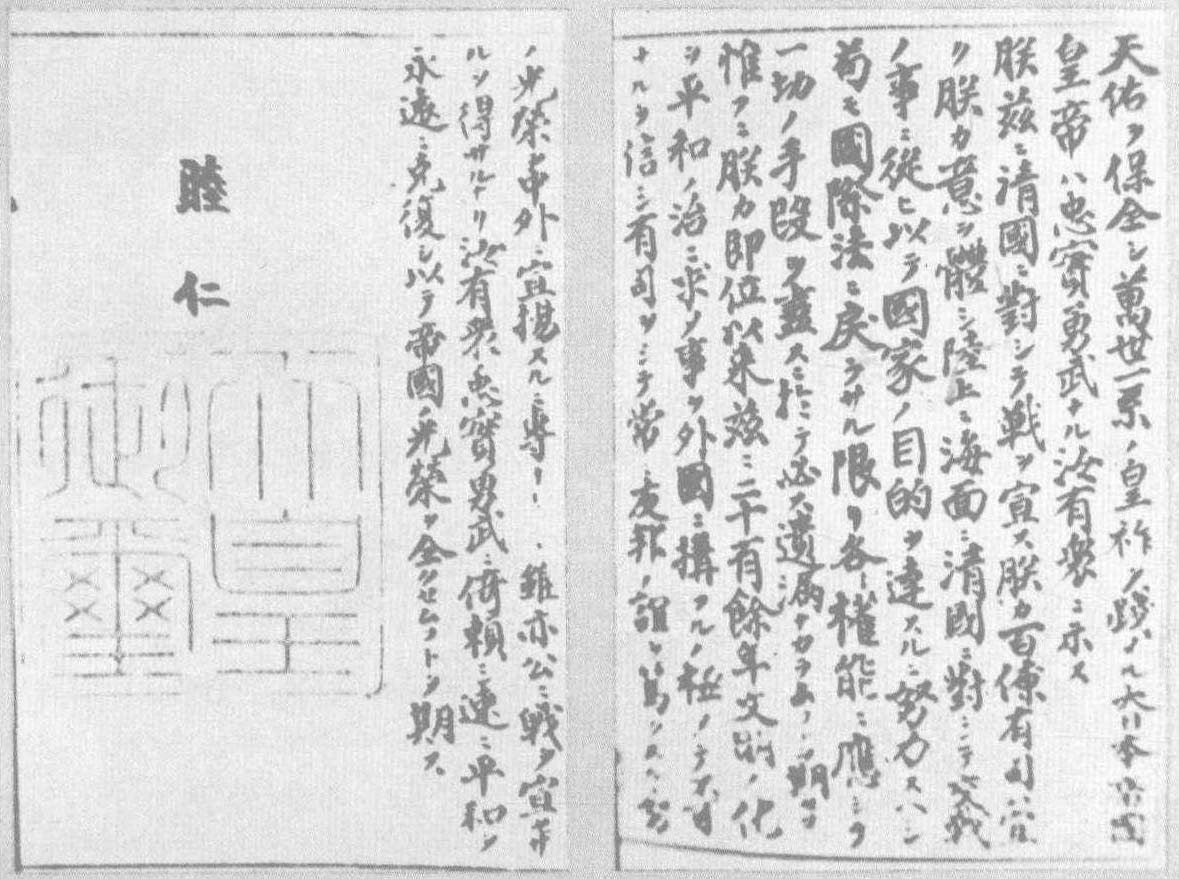 天佑ヲ保全シ萬世一系ノ皇祚ヲ踐メル大日本帝國
皇帝ハ忠實勇武ナル汝有衆ニ示ス
朕茲ニ清國ニ對シテ戰ヲ宣ス朕カ百僚有司ハ宜
ク朕カ意ヲ體シ陸上ニ海面ニ清國ニ對シテ交戰
ノ事ニ從ヒ以テ國家ノ目的ヲ達スルニ努力スヘシ
苟モ國際法ニ戾ラサル限リ各〻權能ニ應シテ
一切ノ手段ヲ盡スニ於テ必ス遺漏ナカラムコトヲ期セヨ
惟フニ朕カ即位以來茲ニ二十有餘年文明ノ化
ヲ平和ノ治ニ求メ事ヲ外國ニ構フルノ極メテ不可
ナルヲ信シ有司ヲシテ常ニ友邦ノ誼ヲ篤クスルニ努
ノ光榮ヲ中外ニ宣揚スルニ專
雖亦公ニ戰ヲ宣セサ
ルヲ得サルナリ汝有衆ノ忠實勇武ニ倚賴シ速ニ平和ヲ
永遠ニ克復シ以テ帝國ノ光榮ヲ全クセムコトヲ期ス
睦仁
天皇
御璽